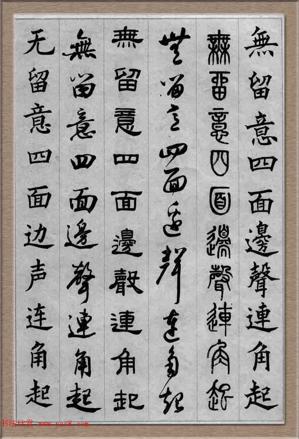 無留意四面邊聲連角起
無留意四面邊聲連角起
無留意四面邊聲連角起
無留意四面邊聲連角起
無留意四面邊聲連角起
无留意四面边声连角起